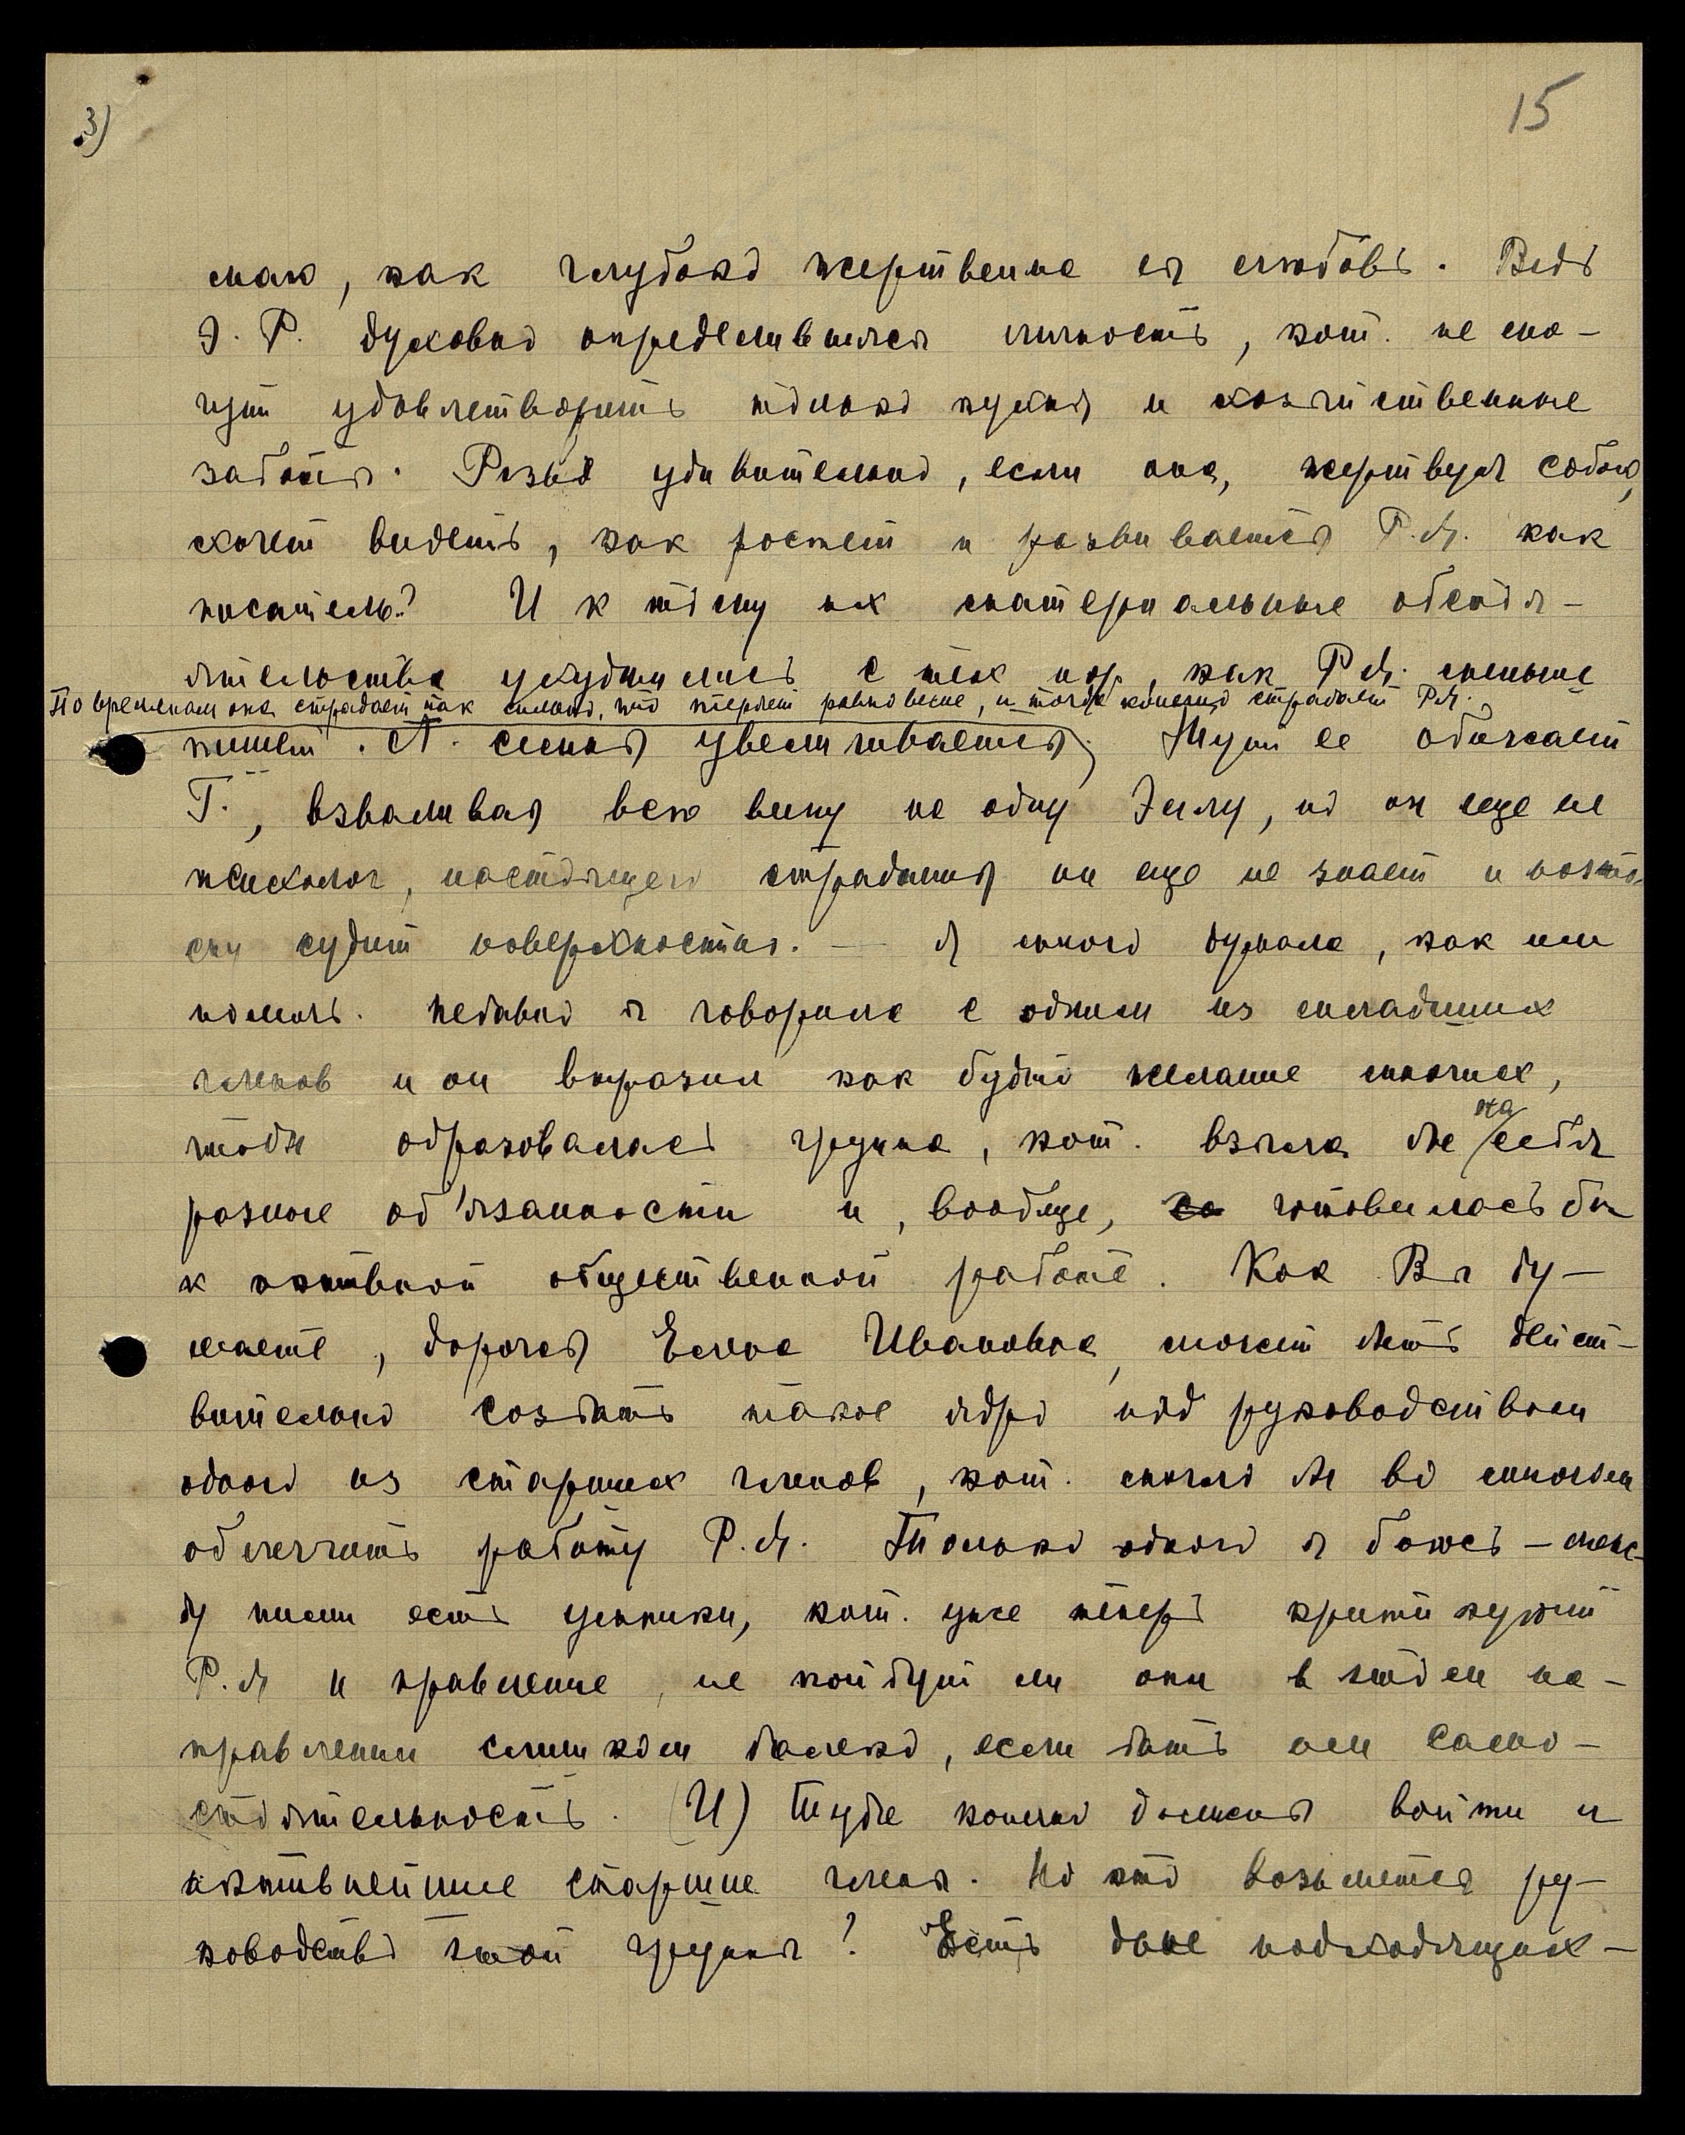 3)
15
маю, как глубоко жертвенна ея любовь. Ведь
Э. Р. духовно определившаяся личность, кот. не мо-
гут удовлетворить только кухня и хозяйственные
заботы. Разве удивительно, если она, жертвуя собою,
хочет видеть, как ростет и развивается Р.Я. как
писатель? И к тому их материальные обстоя-
ятельства ухудшились с тех пор, как Р.Я. меньше
По временам она страдает так сильно, что теряет равновесие, и тогда конечно страдает Р.Я.
пишет. А семья увеличивается. Тут ее обижает
Г., взваливая всю вину на одну Эллу, но он еще не
психолог, настоящего страдания он еще не знает и поэто-
му судит поверхностно. — Я много думала, как им
помочь. Недавно я говорила с одним из младших
членов и он выразил как будто желание многих,
чтобы образовалась группа, кот. взяла бы на себя
разные об'язанности и, вообще, готовилась бы
к активной общественной работе. Как Вы ду-
маете, дорогая Елена Ивановна, может быть дейст-
вительно создать такое ядро под руководством
одного из старших членов, кот. могло бы во многом
облегчить работу Р.Я. Только одного я боюсь – меж-
ду ними есть умники, кот. уже теперь критикуют
Р.Я и правление, не пойдут ли они в этом на-
правлении слишком далеко, если дать им само-
стоятельность. (И) Туда конечно должны войти и
активнейшие старшие члены. Но кто возьмется ру-
ководство этой группы? Есть двое подходящих –